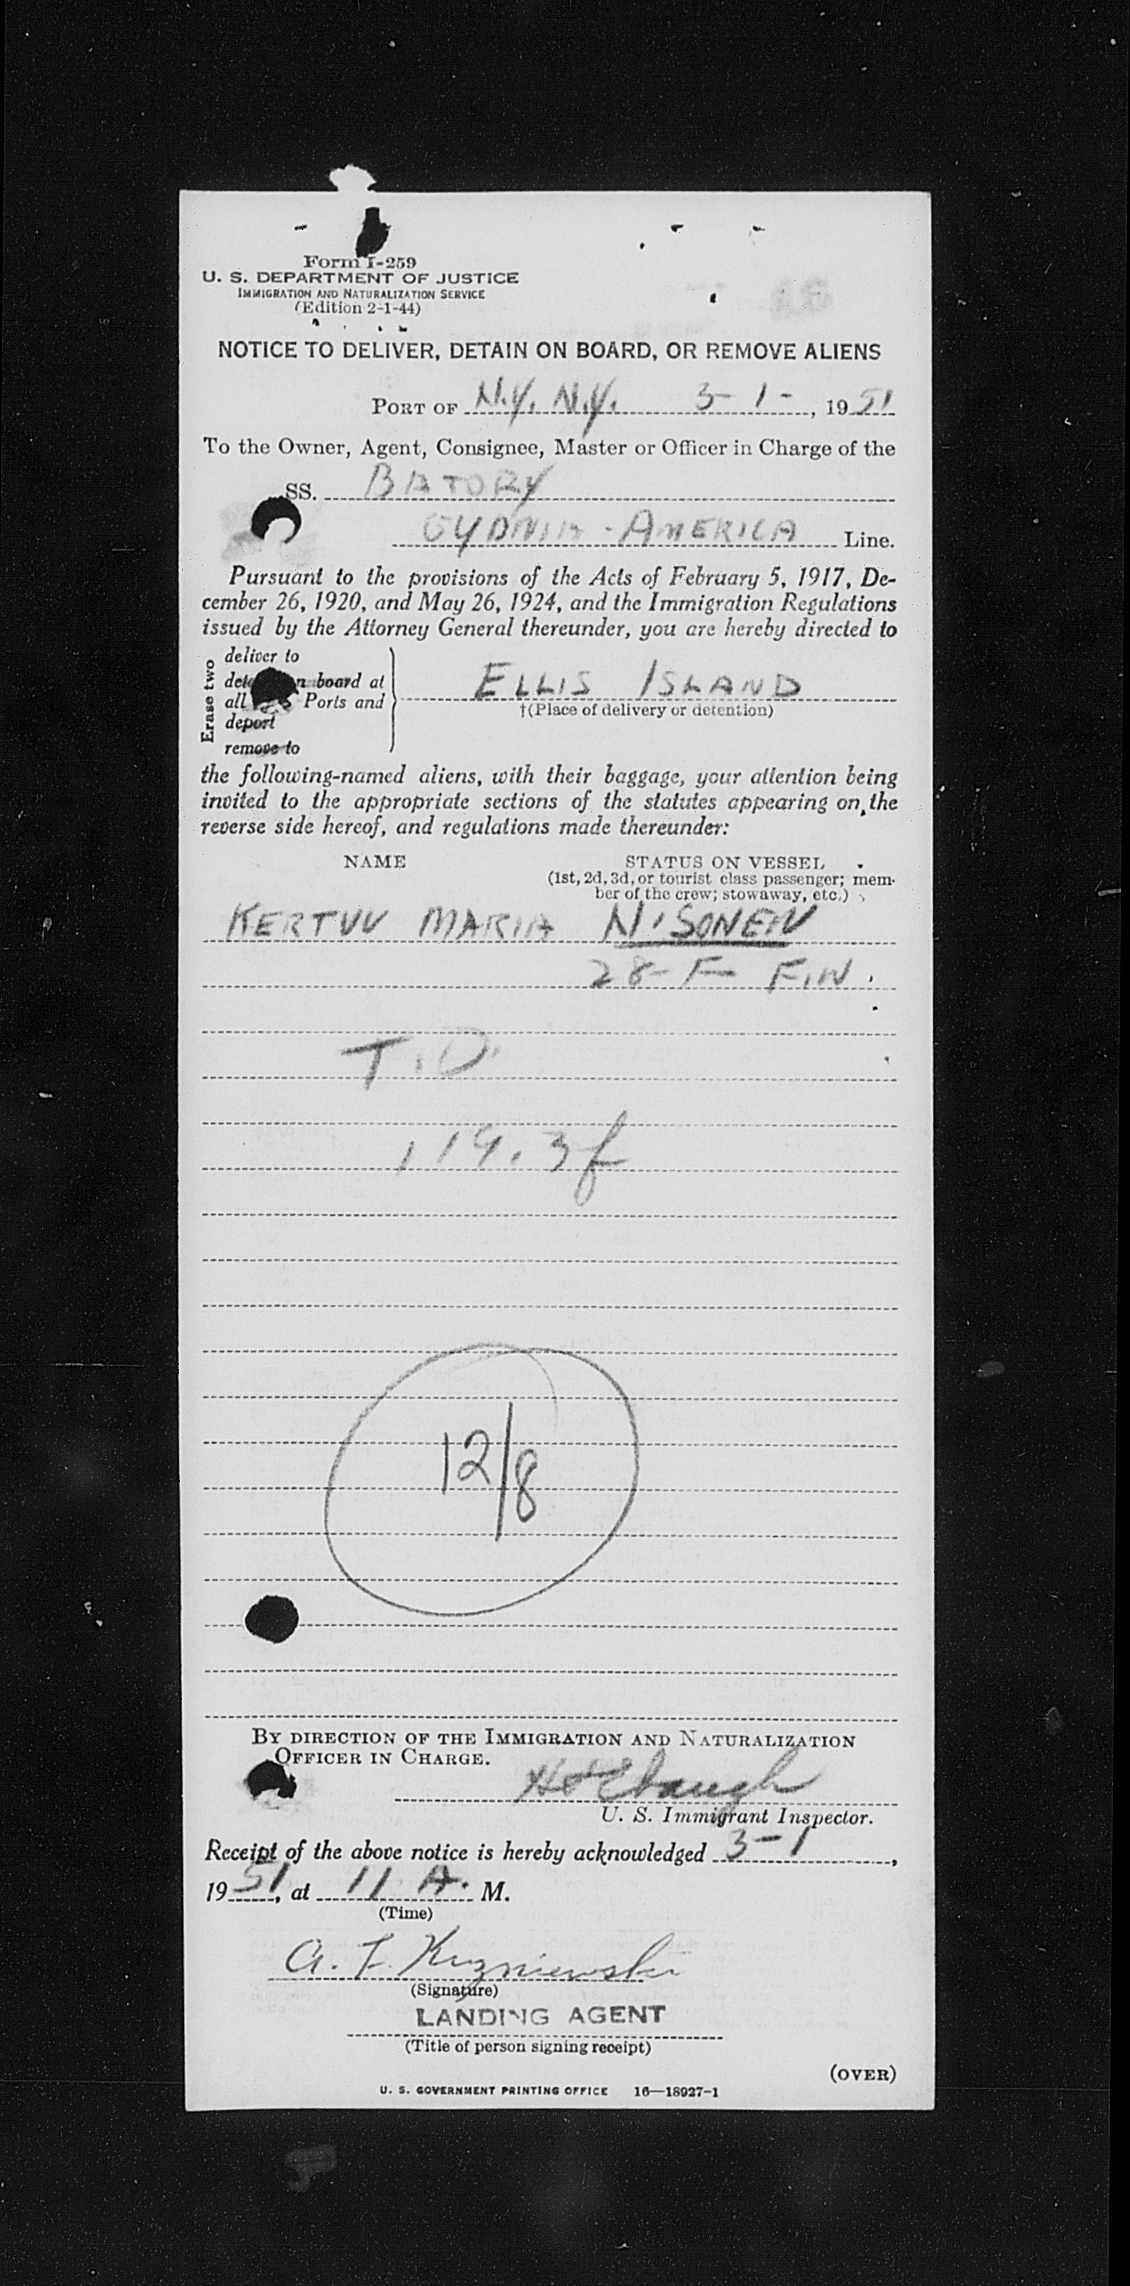 Form I-259
U. S. DEPARTMENT OF JUSTICE
IMMIGRATION AND NATURALIZATION SERVICE
(Edition 2-1-44)
NOTICE TO DELIVER, DETAIN ON BOARD, OR REMOVE ALIENS
PORT OF N.Y. N.Y. 3-1-, 1951
To the Owner, Agent, Consignee, Master or Officer in Charge of the
SS. BATORY
GYDNIA-AMERICA Line.
Pursuant to the provisions of the Acts of February 5, 1917, De-
cember 26, 1920, and May 26, 1924, and the Immigration Regulations
issued by the Attorney General thereunder, you are hereby directed to
Erase two
deliver to
on board at
all Ports and
deport
remove to
ELLIS ISLAND
†(Place of delivery or detention)
the following-named aliens, with their baggage, your attention being
invited to the appropriate sections of the statutes appearing on the
reverse side hereof, and regulations made thereunder:
NAME STATUS ON VESSEL
(1st, 2d, 3d, or tourist class passenger; mem-
ber of the crew; stowaway, etc.)
KERTUU MARIA NISONEN
28-F FIN.
T.D.
119.3f
12/8
BY DIRECTION OF THE IMMIGRATION AND NATURALIZATION
OFFICER IN CHARGE.
U. S. Immigrant Inspector.
Receipt of the above notice is hereby acknowledged 3-1,
1951, at 11 A. M.
(Time)
A. F. Kuzniewski
(Signature)
LANDING AGENT
(Title of person signing receipt)
(OVER)
U. S. GOVERNMENT PRINTING OFFICE 16—18927-1